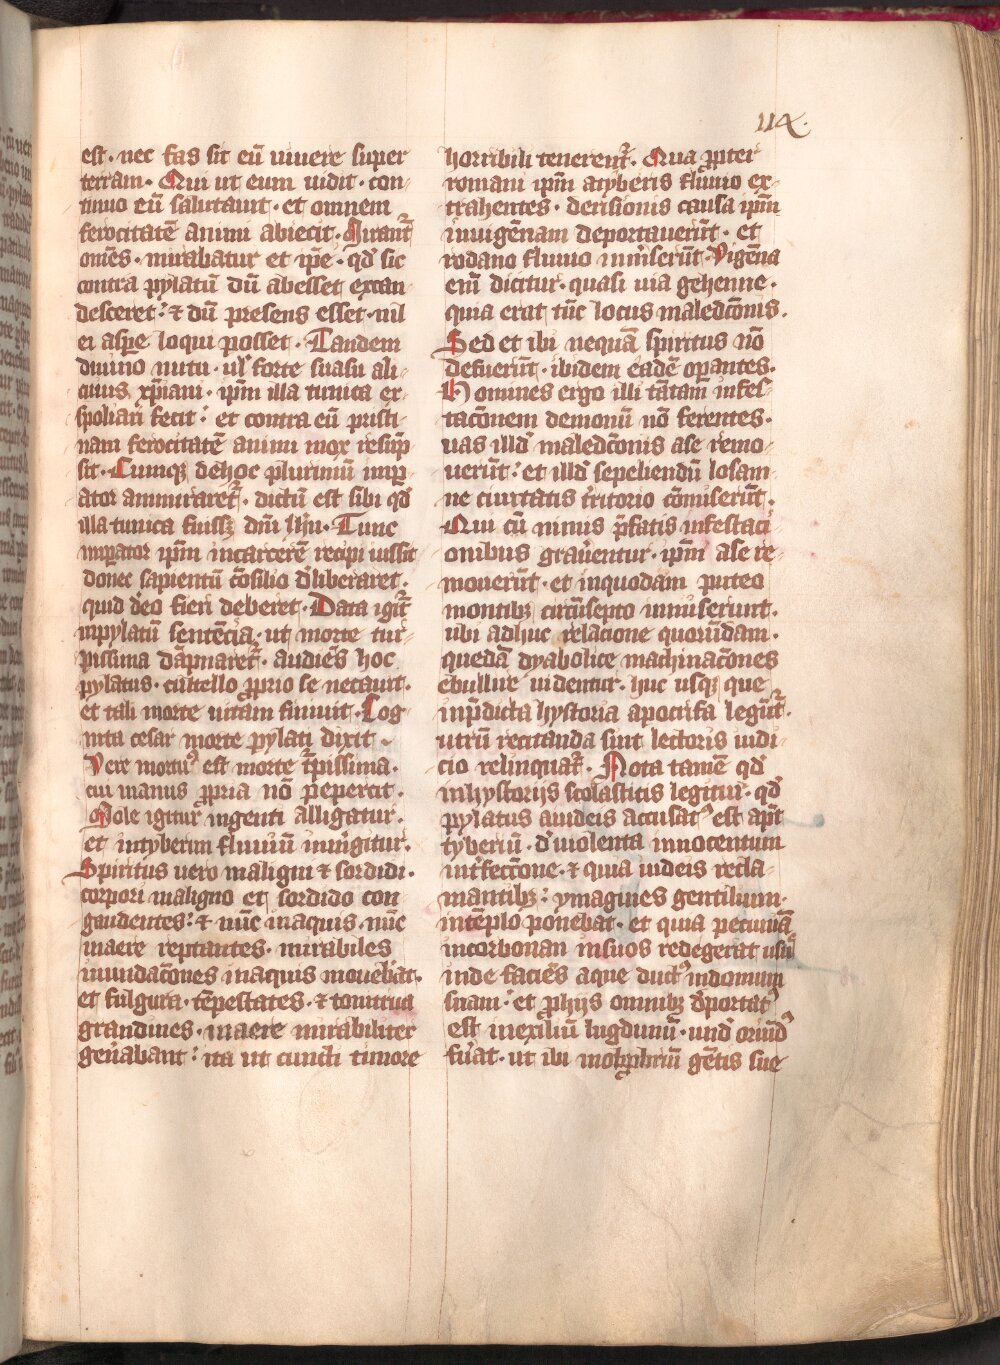 114.
est · nec fas sit eū uiuere super
terram · Qui ut eum uidit · con
tinuo eū salutauit · et omnem
ferocitatē animi abiecit · Mirant᷑
om̄es · mirabatur et ip̄e · qd̄ sic
contra pylatū dū abesset excan
desceret : ⁊ dū presens esset · nil
ei asp̱e loqui posset · Tandem
diuino nutu · ul̓ forte suasu ali
cuius xp̄iani · ip̄m illa tunica ex
spoliari fecit : et contra eū pristi
nam ferocitatē animi mox resūp
sit · Cumqꝫ dehoc plurimū imꝑ
ator ammiraret᷑ · dictū est sibi qd̄
illa tunica fuissꝫ dn̄i ih̄u · Tunc
imperator ip̄m incarcerē recipi iussit
donec sapientū c̄osilio d̓liberaret ·
quid deo fieri deberet · Data igit᷑
inpylatū sentēcia · ut morte tur
pissima dāpnaret᷑ · audiēs hoc
pylatus · cultello ꝓprio se necauit ·
et tali morte uitam finiuit · Cog
nita cesar morte pylati dixit ·
Vere mortuꝰ est morte t᷑pissima ·
cui manus ꝓpria nō pepercit ·
Mole igitur ingenti alligatur ·
et intyberim fluuiū im̄gitur ·
Spiritus uero maligni ⁊ sordidi ·
corpori maligno et sordido con
gaudentes : ⁊ nūc inaquis · nūc
inaere reptantes · mirabiles
inundac̄ones inaquis mouebāt ·
et fulgura · tēpestates · ⁊ tonitrua
grandines · inaere mirabiliter
gen̓abant : ita ut cuncti timore
horribili tenerent᷑ · Qua ꝓpter
romani ip̄m atyberis fluuio ex
trahentes · derisionis causa ip̄m
inuigēnam deportauerūt · et
rodano fluuio immiserūt · Vigēna
em̄ dicitur · quasi uia gehenne ·
quia erat tūc locus maledc̄onis ·
Sed et ibi nequā spiritus nō
defuerūt · ibidem eādē oꝑantes ·
Homines ergo illi tātam infes
tac̄onem demonū nō ferentes ·
uas illd̓ maledc̄onis ase remo
uerūt : et illd̓ sepeliendū losan
ne ciuitatis t̓ritorio c̄omiserūt ·
Qui cū nimis p̄fatis infestaci
onibus grauentur · ip̄m ase re
mouerūt · et inquodam puteo
montibꝫ circūsepto immiserunt ·
ubi adhuc relacione quorūdam ·
quedā dyabolice machinac̄ones
ebullire uidentur · huc usqꝫ que
inp̄dicta hystoria apocrifa legūt᷑ ·
utrū recitanda sint lectoris iudi
cio relinquat᷑ · Nota tamē qd̄
inhystorijs scolasticis legitur · qd̄
pylatus aiudeis accusatꝰ est apt̄
tyberiū · d̓ uiolenta innocentum
int̓fectc̄one · ⁊ quia iudeis recla
mantibꝫ : ymagines gentilium ·
intēplo ponebat · et quia pecuniā
incorbonan insuos redegerat usꝰ
inde faciēs aque ductꝰ indomum
suam · et ꝓ hijs omnibꝫ d̓portatꝰ
est inexiliū lugdunū · und̓ oriūdꝰ
fu̓at · ut ibi inobꝓbriū gētis sue